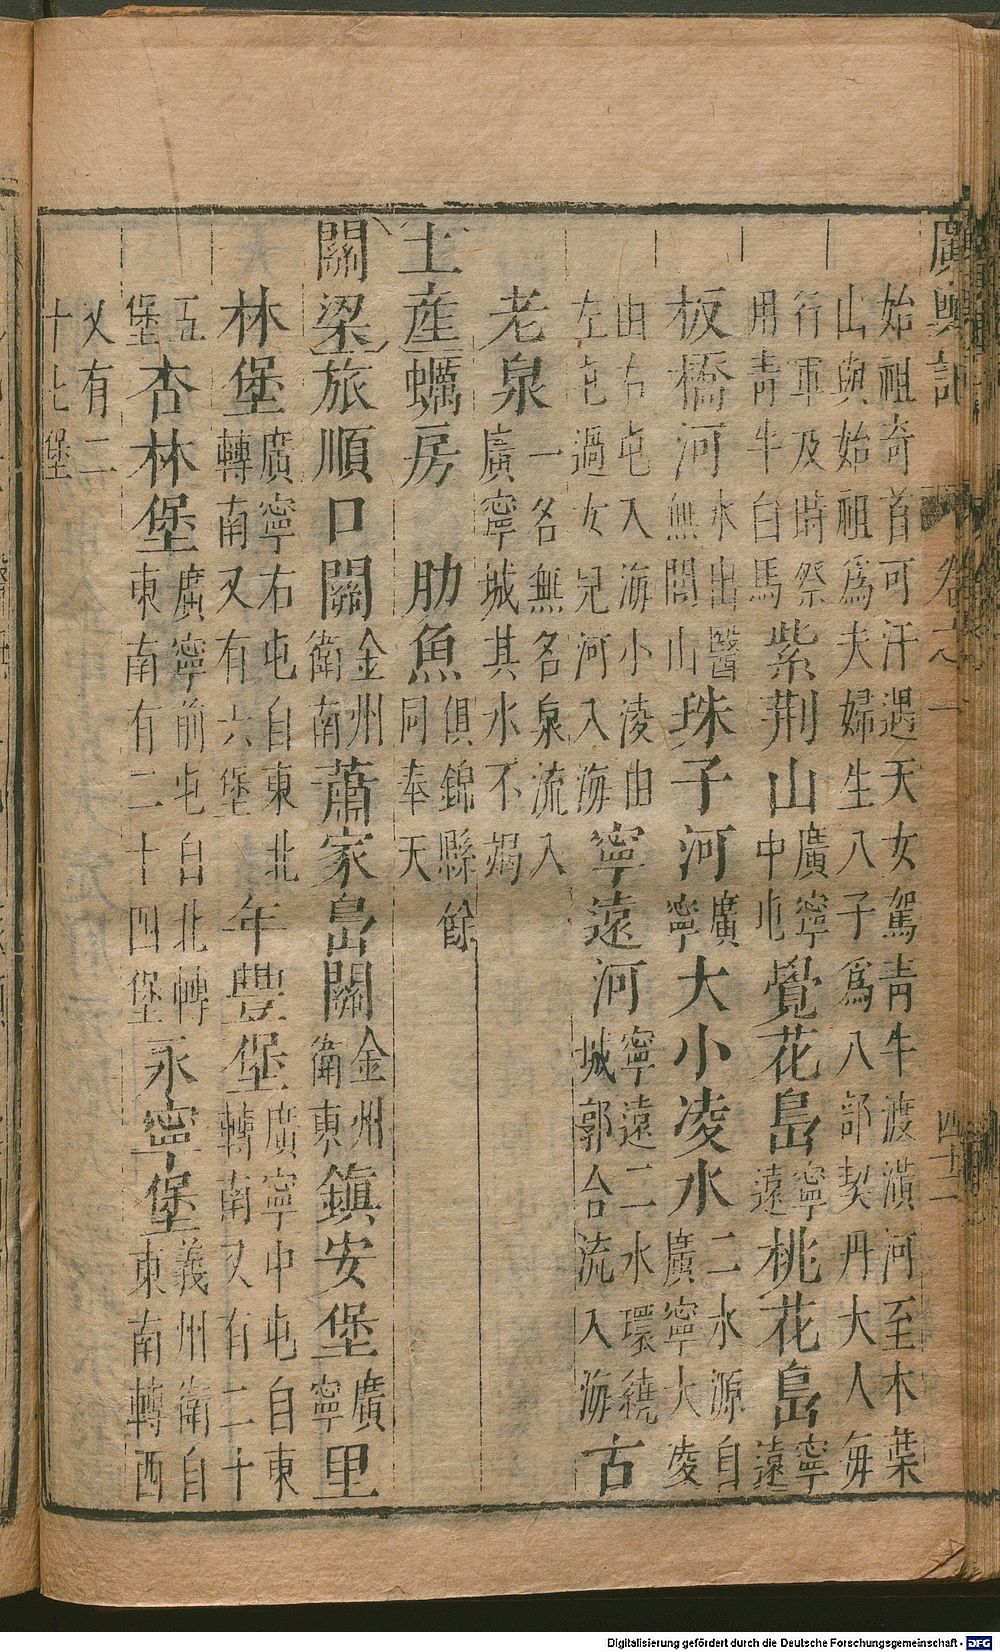 廣輿記 卷之一 四十二
始祖奇首可汗遇天女駕青牛渡潢河至木葉
山與始祖爲夫婦生八子爲八部契丹大人每
行軍及時祭用青牛白馬紫荆山廣寧中屯覺花島寧遠桃花島寧遠
板橋河水出醫無閭山珠子河廣寧大小凌水二水源自廣寧大凌
由右屯入海小凌由左屯過女兒河入海寧遠河寧遠二水環繞城郭合流入海古
老泉一名無名泉流入廣寧城其水不涸
土產蠣房 肋魚俱錦縣餘同奉天
關梁旅順口關金州衛南蕭家島關金州衛東鎮安堡廣寧里
林堡廣寧右屯自東北轉南又有六堡年豐堡廣寧中屯自東轉南又有二十
五堡杏林堡廣寧前屯自北轉東南有二十四堡永寧堡義州衛自東南轉西
又有二十七堡
Digitalisierung gefördert durch die Deutsche Forschungsgemeinschaft - DFG